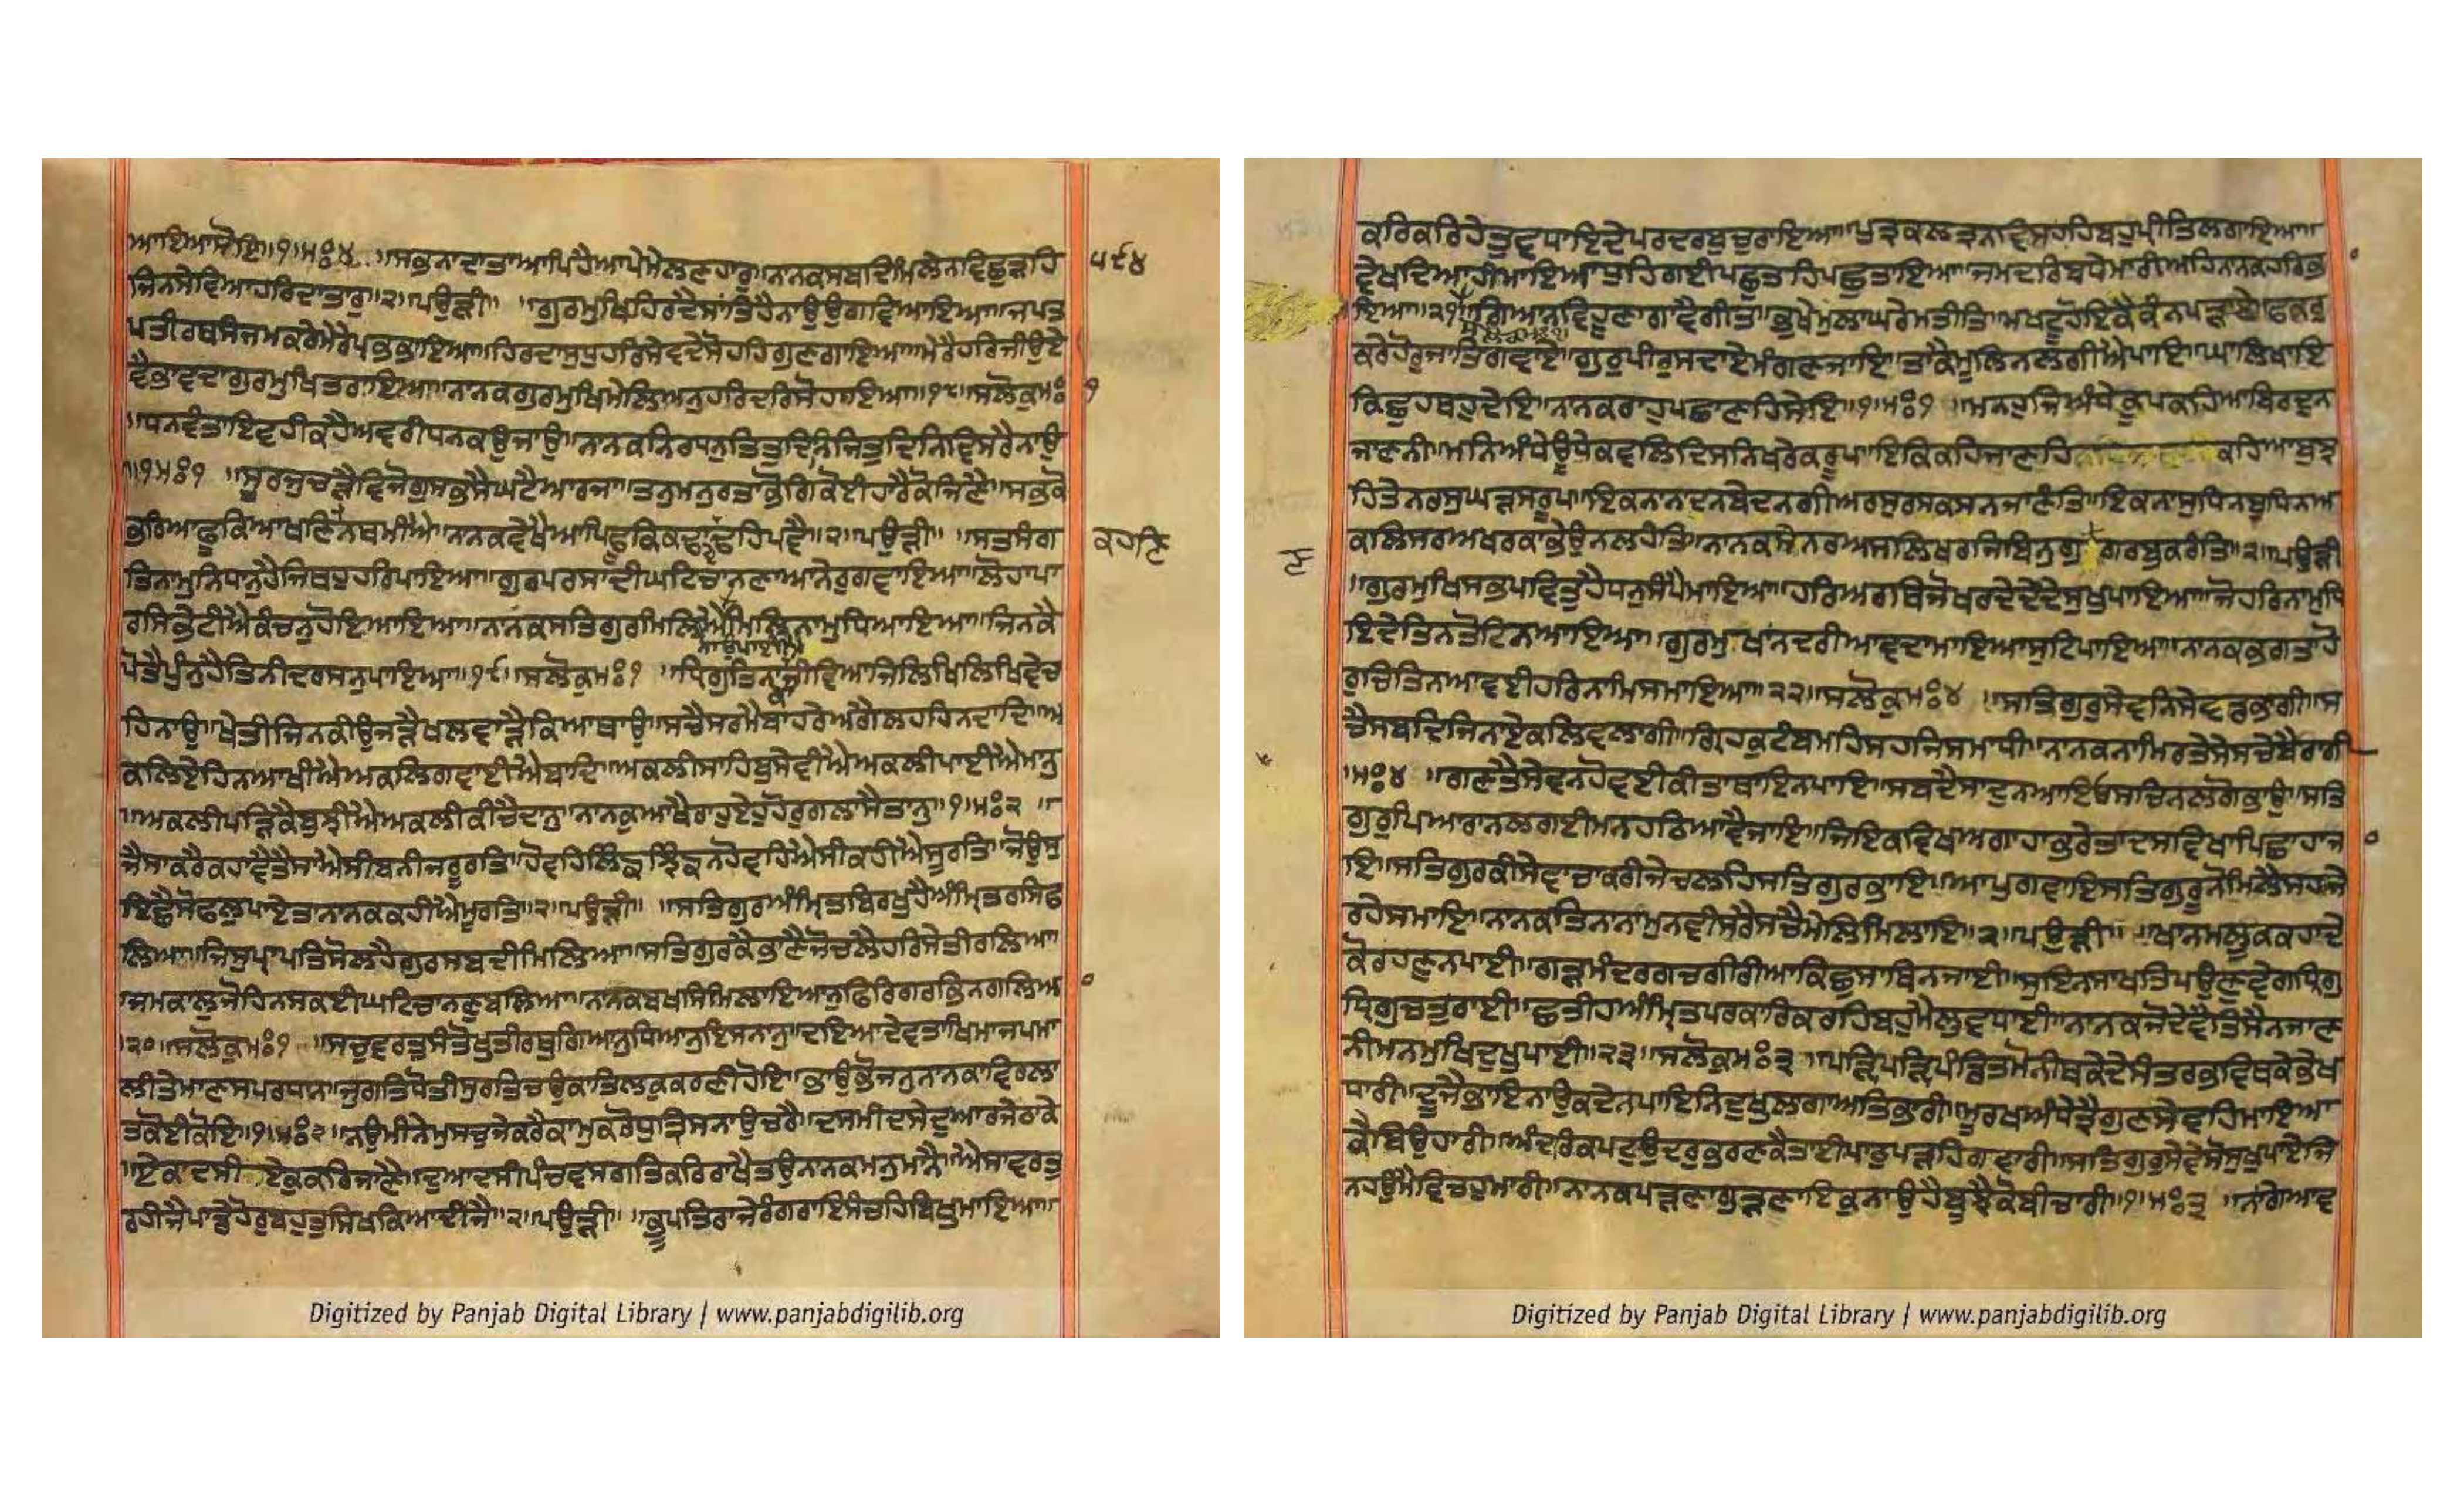 ਆਇਆਸੋਇ॥੧॥ਮਃ੪ ॥ਸਭਨਾਦਾਤਾਆਪਿਹੈਆਪੇਮੇਲਣਹਾਰੁ॥ਨਾਨਕਸਬਦਿਮਿਲੇਨਵਿਛੁੜਹਿ ੫੯੪
ਜਿਨਸੇਵਿਆਹਰਿਦਾਤਾਰੁ॥੨॥ਪਉੜੀ॥ ॥ਗੁਰਮੁਖਿਹਿਰਦੈਸਾਂਤਿਹੈਨਾਉਉਗਵਿਆਇਆ॥ਜਪਤ
ਪਤੀਰਥਸੰਜਮਕਰੇਮੇਰੇਪ੍ਰਭਭਾਇਆ॥ਹਿਰਦਾਸੁਧੁਹਰਿਸੇਵਦੇਸੋਹਹਿਗੁਣਗਾਇਆ॥ਮੇਰੇਹਰਿਜੀਉਏ
ਵੈਭਾਵਦਾਗੁਰਮੁਖਿਤਰਾਇਆ॥ਨਾਨਕਗੁਰਮੁਖਿਮੇਲਿਅਨੁਹਰਿਦਰਿਸੋਹਾਇਆ॥੧੮॥ਸਲੋਕੁਮਃ੧
॥ਧਨਵੰਤਾਇਵਹੀਕਹੈਅਵਰੀਧਨਕਉਜਾਉ॥ਨਾਨਕਨਿਰਧਨੁਤਿਤੁਦਿਨਿਜਿਤੁਦਿਨਿਵਿਸਰੈਨਾਉ
॥੧॥ਮਃ੧ ॥ਸੂਰਜੁਚੜੈਵਿਜੋਗੁਸਭਸੈਘਟੈਆਰਜਾ॥ਤਨੁਮਨੁਰਤਾਭੋਗਿਕੋਈਹਾਰੈਕੋਜਿਣੈ॥ਸਭਕੋ
ਭਰਿਆਫੂਕਿਆਖਣਿਨਥਮੀਐ॥ਨਾਨਕਵੇਖੈਆਪਿਫੂਕਕਢਾਏਢਹਿਪਵੈ॥੨॥ਪਉੜੀ॥ ॥ਸਤਸੰਗ ਕਹਣਿ
ਤਿਨਾਮੁਨਿਧਾਨੁਹੈਜਿਥਹੁਹਰਿਪਾਇਆ॥ਗੁਰਪਰਸਾਦੀਘਟਿਚਾਨਣਾਆਨੇਰੁਗਵਾਇਆ॥ਲੋਹਾਪਾ
ਰਸਿਭੇਟੀਐਕੰਚਨੁਹੋਇਆਇਆ॥ਨਾਨਕਸਤਿਗੁਰਿਮਿਲਿਐਨਾਉਪਾਈਐਮਿਲਿਨਾਮੁਧਿਆਇਆ॥ਜਿਨਕੈ
ਪੋਤੈਪੁੰਨੁਹੈਤਿਨੀਦਰਸਨੁਪਾਇਆ॥੧੯॥ਸਲੋਕੁਮਃ੧ ॥ਧ੍ਰਿਗੁਤਿਨਾਕਾਜੀਵਿਆਜਿਲਿਖਿਲਿਖਿਵੇਚ
ਹਿਨਾਉ॥ਖੇਤੀਜਿਨਕੀਉਜੜੈਖਲਵਾੜੈਕਿਆਥਾਉ॥ਸਚੈਸਰਮੈਬਾਹਰੇਅਗੈਲਹਹਿਨਦਾਦਿ॥ਅ
ਕਲਿਏਹਿਨਆਖੀਐਅਕਲਿਗਵਾਈਐਬਾਦਿ॥ਅਕਲੀਸਾਹਿਬੁਸੇਵੀਐਅਕਲੀਪਾਈਐਮਾਨੁ
॥ਅਕਲੀਪੜਿਕੈਬੁਝੀਐਅਕਲੀਕੀਚੈਦਾਨੁ॥ਨਾਨਕੁਆਖੈਰਾਹੁਏਹੁਹੋਰੁਗਲਾਸੈਤਾਨੁ॥੧॥ਮਃ੨ ॥
ਜੈਸਾਕਰੈਕਹਾਵੈਤੈਸਾਐਸੀਬਨੀਜਰੂਰਤਿ॥ਹੋਵਹਿਲਿੰਙਝਿੰਙਨਹੋਵਹਿਐਸੀਕਹੀਐਸੂਰਤਿ॥ਜੋਓਸੁ
ਇਛੈਸੋਫਲੁਪਾਏਤਾਨਾਨਕਕਹੀਐਮੂਰਤਿ॥੨॥ਪਉੜੀ॥ ॥ਸਤਿਗੁਰਅੰਮ੍ਰਿਤਬਿਰਖੁਹੈਅੰਮ੍ਰਿਤਰਸਿਫ
ਲਿਆ॥ਜਿਸੁਪ੍ਰਾਪਤਿਸੋਲਹੈਗੁਰਸਬਦੀਮਿਲਿਆ॥ਸਤਿਗੁਰਕੈਭਾਣੈਜੋਚਲੈਹਰਿਸੇਤੀਰਲਿਆ
॥ਜਮਕਾਲੁਜੋਹਿਨਸਕਈਘਟਿਚਾਨਣੁਬਲਿਆ॥ਨਾਨਕਬਖਸਿਮਿਲਾਇਅਨੁਫਿਰਿਗਰਭਿਨਗਲਿਆ
॥੨੦॥ਸਲੋਕੁਮਃ੧ ॥ਸਚੁਵਰਤੁਸੰਤੋਖੁਤੀਰਥੁਗਿਆਨੁਧਿਆਨੁਇਸਨਾਨੁ॥ਦਇਆਦੇਵਤਾਖਿਮਾਜਪਮਾ
ਲੀਤੇਮਾਣਸਪਰਧਾਨ॥ਜੁਗਤਿਧੋਤੀਸੁਰਤਿਚਉਕਾਤਿਲਕੁਕਰਣੀਹੋਇ॥ਭਾਉਭੋਜਨੁਨਾਨਕਾਵਿਰਲਾ
ਤਕੋਈਕੋਇ॥੧॥ਮਃ੨ ॥ਨਉਮੀਨੇਮੁਸਚੁਜੇਕਰੈਕਾਮੁਕਰੋਧੁਤ੍ਰਿਸਨਾਉਚਰੈ॥ਦਸਮੀਦਸੇਦੁਆਰਜੇਠਾਕੇ
॥ਏਕਾਦਸੀ ਏਕੁਕਰਿਜਾਣੈ॥ਦੁਆਦਸੀਪੰਚਵਸਗਤਿਕਰਿਰਾਖੈਤਉਨਾਨਕਮਨੁਮਾਨੈ॥ਐਸਾਵਰਤੁ
ਰਹੀਜੈਪਾਡੇਹੋਰਬਹੁਤੁਸਿਖਕਿਆਦੀਜੈ॥੨॥ਪਉੜੀ॥ ॥ਭੂਪਤਿਰਾਜੇਰੰਗਰਾਇਸੰਚਹਿਬਿਖੁਮਾਇਆ॥
Digitized by Panjab Digital Library | www.panjabdigilib.org
ਕਰਿਕਰਿਹੇਤੁਵਧਾਇਦੇਪਰਦਰਬੁਚੁਰਾਇਆ॥ਪੁਤ੍ਰਕਲਤ੍ਰਨਵਿਸਹਹਿਬਹੁਪ੍ਰੀਤਿਲਗਾਇਆ॥
ਵੇਖਦਿਆਹੀਮਾਇਆਧੁਹਿਗਈਪਛੁਤਹਿਪਛੁਤਾਇਆ॥ਜਮਦਰਿਬਧੇਮਾਰੀਅਹਿਨਾਨਕਹਰਿਭਾ
ਇਆ॥੨੧॥ਸਲੋਕਮਃ੧॥ਗਿਆਨਵਿਹੂਣਾਗਾਵੈਗੀਤ॥ਭੁਖੇਮੁਲਾਘਰੇਮਸੀਤਿ॥ਮਖਟੂਹੋਇਕੈਕੰਨਪੜਾਏ॥ਫਕਰੁ
ਕਰੇਹੋਰੁਜਾਤਿਗਵਾਏ॥ਗੁਰੁਪੀਰੁਸਦਾਏਮੰਗਣਜਾਇ॥ਤਾਕੈਮੂਲਿਨਲਗੀਐਪਾਇ॥ਘਾਲਿਖਾਇ
ਕਿਛੁਹਥਹੁਦੇਇ॥ਨਾਨਕਰਾਹੁਪਛਾਣਹਿਸੇਇ॥੧॥ਮਃ੧ ॥ਮਨਹੁਜਿਅੰਧੇਕੂਪਕਹਿਆਬਿਰਦੁਨ
ਜਾਣਨੀ॥ਮਨਿਅੰਧੇਊਧੇਕਵਲਿਦਿਸਨਿਖਰੇਕਰੂਪ॥ਇਕਿਕਹਿਜਾਣਹਿ ਕਹਿਆਬੁਝ
ਹਿਤੇਨਰਸੁਘੜਸਰੂਪ॥ਇਕਨਾਨਾਦਨਬੇਦਨਗੀਅਰਸੁਰਸਕਸਨਜਾਣੰਤਿ॥ਇਕਨਾਸੁਧਿਨਬੁਧਿਨਾਅ
ਕਲਿਸਰਅਖਰਕਾਭੇਉਨਲਹੰਤਿ॥ਨਾਨਕਸੇਨਰਅਸਲਿਖਰਜਿਬਿਨੁਗੁ ਗਰਬੁਕਰੰਤਿ॥੨॥ਪਉੜੀ
॥ਗੁਰਮੁਖਿਸਭਪਵਿਤੁਹੈਧਨੁਸੰਪੈਮਾਇਆ॥ਹਰਿਅਰਥਿਜੋਖਰਚਦੇਦੇਂਦੇਸੁਖੁਪਾਇਆ॥ਜੋਹਰਿਨਾਮੁਧਿ
ਇਦੇਤਿਨਤੋਟਿਨਆਇਆ॥ਗੁਰਮੁਖਾਂਨਦਰੀਆਵਦਾਮਾਇਆਸੁਟਿਪਾਇਆ॥ਨਾਨਕਭਗਤਾਂਹੋ
ਰੁਚਿਤਿਨਆਵਈਹਰਿਨਾਮਿਸਮਾਇਆ॥੨੨॥ਸਲੋਕੁਮਃ੪ ॥ਸਤਿਗੁਰੁਸੇਵਨਿਸੇਵਡਭਾਗੀ॥ਸ
ਚੈਸਬਦਿਜਿਨਾਏਕਲਿਵਲਾਗੀ॥ਗਿਰਹਕੁਟੰਬਮਹਿਸਹਜਿਸਮਾਧੀ॥ਨਾਨਕਨਾਮਿਰਤੇਸੇਸਚੇਬੈਰਾਗੀ
॥ਮਃ੪ ॥ਗਣਤੈਸੇਵਨਹੋਵਈਕੀਤਾਥਾਇਨਪਾਇ॥ਸਬਦੈਸਾਦੁਨਆਇਓਸਚਿਨਲਗੋਭਾਉ॥ਸਤਿ
ਗੁਰੁਪਿਆਰਾਨਲਗਈਮਨਹਠਿਆਵੈਜਾਇ॥ਜੇਇਕਵਿਖਅਗਾਹਾਭਰੇਤਾਂਦਸਵਿਖਾਂਪਿਛਾਹਾਜਾ
ਇ॥ਸਤਿਗੁਰਕੀਸੇਵਾਚਾਕਰੀਜੇਚਲਹਿਸਤਿਗੁਰਭਾਇ॥ਆਪੁਗਵਾਇਸਤਿਗੁਰੂਨੋਮਿਲੈਸਹਜੇ
ਰਹੈਸਮਾਇ॥ਨਾਨਕਤਿਨਾਨਾਮੁਨਵੀਸਰੈਸਚੈਮੇਲਿਮਿਲਾਇ॥੨॥ਪਉੜੀ॥ ॥ਖਾਨਮਲੂਕਕਹਾਦੇ
ਕੋਰਹਣੁਨਪਾਈ॥ਗੜਮੰਦਰਗਚਗੀਰੀਆਕਿਛੁਸਾਥਿਨਜਾਈ॥ਸੁਇਨਸਾਖਤਿਪਉਣਵੇਗਧ੍ਰਿਗੁ
ਧ੍ਰਿਗੁਚਤੁਰਾਈ॥ਛਤੀਹਅੰਮ੍ਰਿਤਪਰਕਾਰਿਕਰਹਿਬਹੁਮੈਲੁਵਧਾਈ॥ਨਾਨਕਜੋਦੇਵੈਤਿਸੈਨਜਾਣ
ਨੀਮਨਮੁਖਿਦੁਖੁਪਾਈ॥੨੩॥ਸਲੋਕੁਮਃ੩ ॥ਪੜਿਪੜਿਪੰਡਿਤਮੋਨੀਥਕੇਦੇਸੰਤਰਭਵਿਥਕੇਭੇਖ
ਧਾਰੀ॥ਦੂਜੈਭਾਇਨਾਉਕਦੇਨਪਾਇਨਿਦੁਖੁਲਾਗਾਅਤਿਭਾਰੀ॥ਮੂਰਖਅੰਧੇਤ੍ਰੈਗੁਣਸੇਵਹਿਮਾਇਆ
ਕੈਬਿਉਹਾਰੀ॥ਅੰਦਰਿਕਪਟੁਉਦਰੁਭਰਣਕੈਤਾਈਪਾਠੁਪੜਹਿਗਾਵਾਰੀ॥ਸਤਿਗੁਰੁਸੇਵੇਸੋਸੁਖੁਪਾਏਜਿ
ਨਹਉਮੈਵਿਚਹੁਮਾਰੀ॥ਨਾਨਕਪੜਣਾਗੁੜਣਾਇਕੁਨਾਉਹੈਬੂਝੈਕੋਬੀਚਾਰੀ॥੧॥ਮਃ੩ ॥ਨਾਂਗੇਆਵ
Digitized by Panjab Digital Library | www.panjabdigilib.org